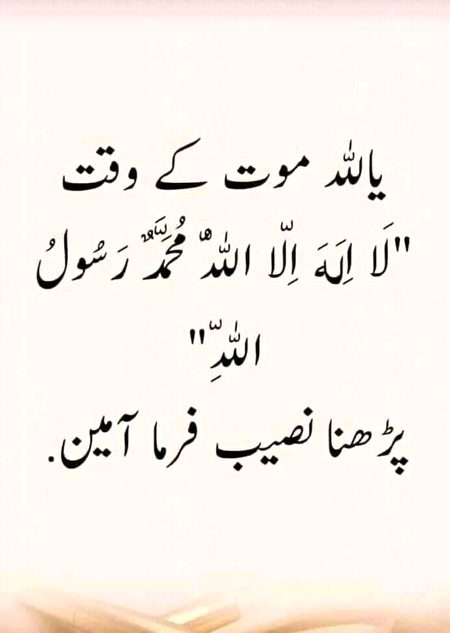 یااللہ موت کے وقت
"لَا اِلٰہَ اِلَّا اللہُ مُحَمَّدٌ رَسُولُ
اللہِ"
پڑھنا نصیب فرما آمین.